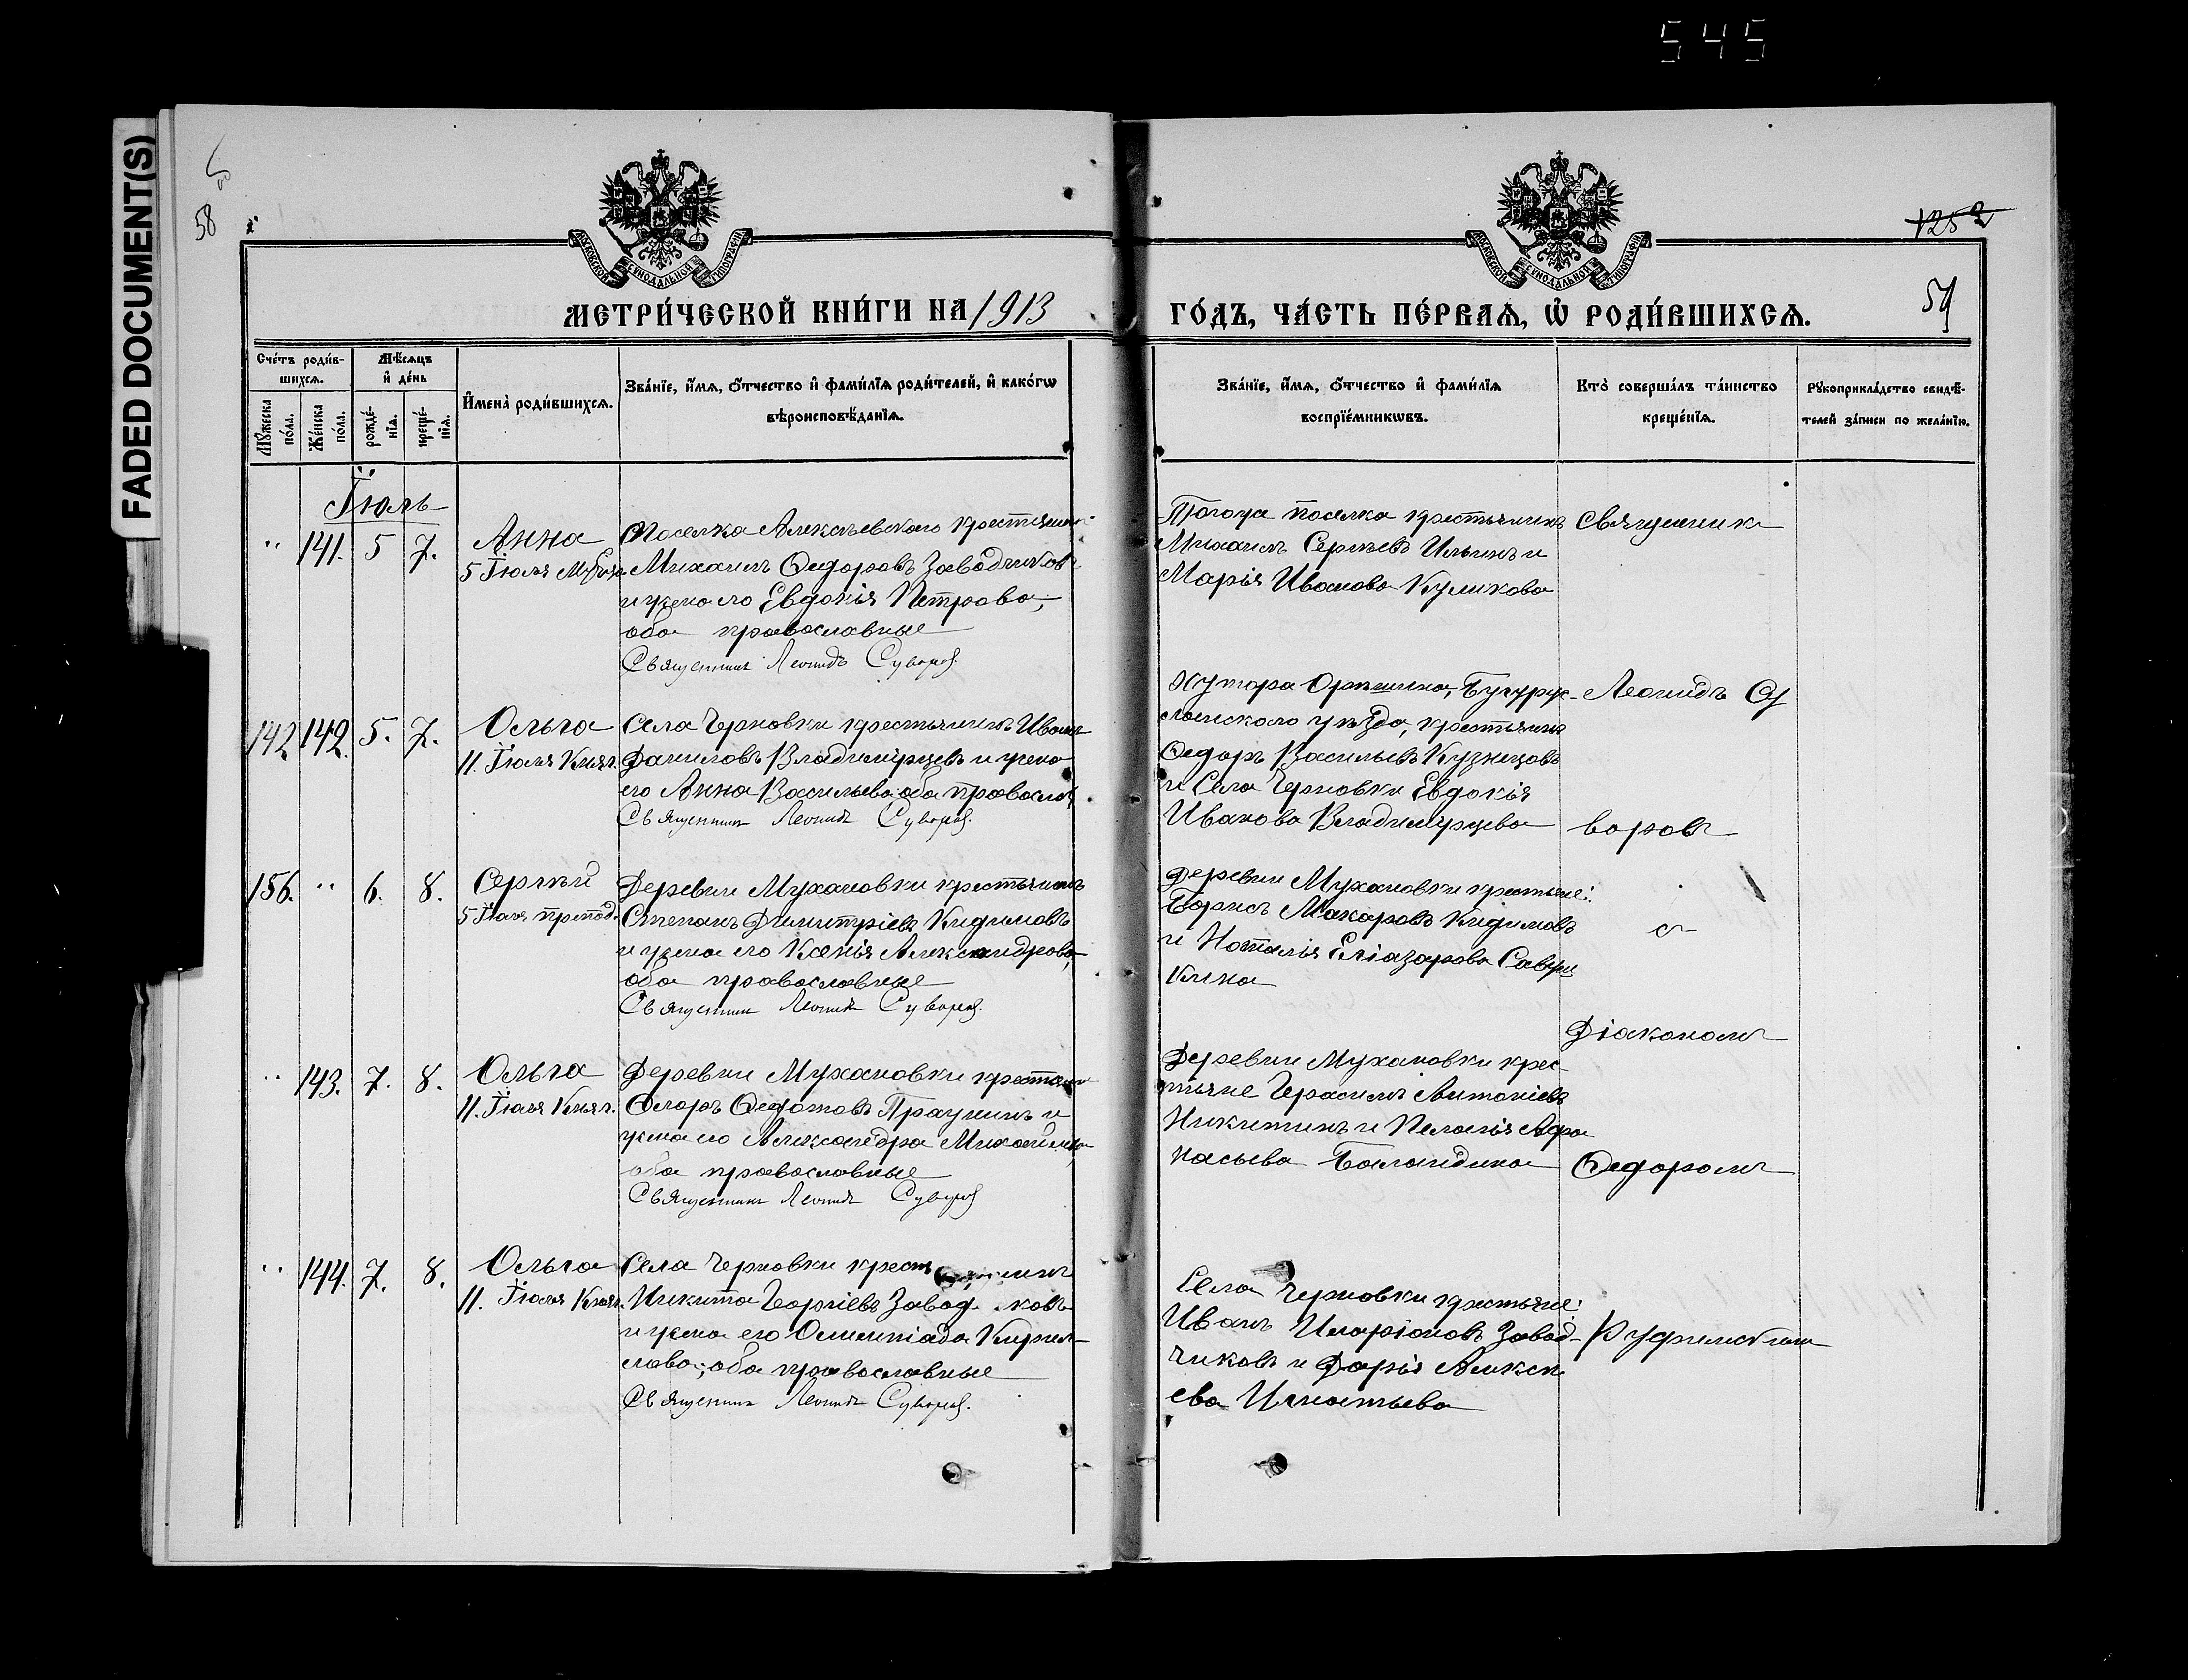 545
FADED DOCUMENT(S)
58
1252
59
МОСКОВСКОЙ СУНОДАЛЬНОЙ ТИПОГРАФІИ
МОСКОВСКОЙ СУНОДАЛЬНОЙ ТИПОГРАФІИ
МЕТРИ́ЧЕСКОЙ КНИ́ГИ НА 1913
ГО́ДЪ, ЧА́СТЬ ПЕ́РВАѦ, Ѡ РОДИ́ВШИХСѦ.
Сче́тъ роди́в-
шихсѧ.
Мѣ́сѧцъ
и҆ де́нь
Мꙋ́жеска по́ла.
Же́нска по́ла.
рожде́-нїѧ.
креще́-нїѧ.
И҆мена̀ роди́вшихсѧ.
Зва́нїе, и҆́мѧ, ѻ҆́тчество и҆ фами́лїѧ роди́телей, и҆ како́гѡ
вѣроисповѣ́данїѧ.
Зва́нїе, и҆́мѧ, ѻ҆́тчество и҆ фами́лїѧ
воспрїе́мникѡвъ.
Кто̀ соверша́лъ та́инство
креще́нїѧ.
Рꙋкоприкла́дство свидѣ́-
телей за́писи по жела́нїю.
Іюль
" 141. 5 7. Анна
5 Іюля
Поселка Алексѣевскаго крестьянинъ
Михаилъ Ѳедоровъ Заводчиковъ
и жена его Евдокія Петрова,
оба православные
Священникъ Леонидъ Суворов.
Того же поселка крестьянинъ
Михаилъ Сергѣевъ Ильинъ и
Марія Иванова Куликова
Священник
142 142. 5. 7. Ольга
11. Іюля Княг.
Села Черновки крестьянинъ Иванъ
Даниловъ Владимірцевъ и жена
его Анна Васильева оба православ
Священникъ Леонидъ Суворов.
Хутора Орѣшина, Бугурус-
ланскаго уѣзда, крестьянинъ
Ѳедоръ Васильевъ Кузнецовъ
и Села Черновки Евдокія
Иванова Владимірцева
Леонидъ Су
воровъ
156. " 6. 8. Сергѣй
5 Іюля препод.
Деревни Мухановки крестьянинъ
Степанъ Димитріевъ Кидимовъ
и жена его Ксенія Александрова,
оба православные
Священник Леонидъ Суворов.
Деревни Мухановки крестьяне:
Борисъ Макаровъ Кидимовъ
и Наталія Еліазарова
кина
с
Діакономъ
" 143. 7. 8. Ольга
11. Іюля Княг.
Деревни Мухановки крестьянинъ
Ѳедотовъ и
жена его Александра Михайлова
оба православные
Священникъ Леонидъ Суворов
Деревни Мухановки крес-
тьяне Герасимъ Антоніевъ
Никитинъ и Пелагія Афа
насьева Баландина
Ѳедоромъ
" 144. 7. 8. Ольга
11. Іюля Княг.
Села Черновки крестьянинъ
Никита Георгіевъ Завод ковъ
и жена его Олимпіада Кирил-
лова, оба православные
Священник Леонидъ Суворов.
Села Черновки крестьяне:
Иванъ Иларіоновъ Завод-
чиковъ и Дарія Алексѣ
ева Игнатьева